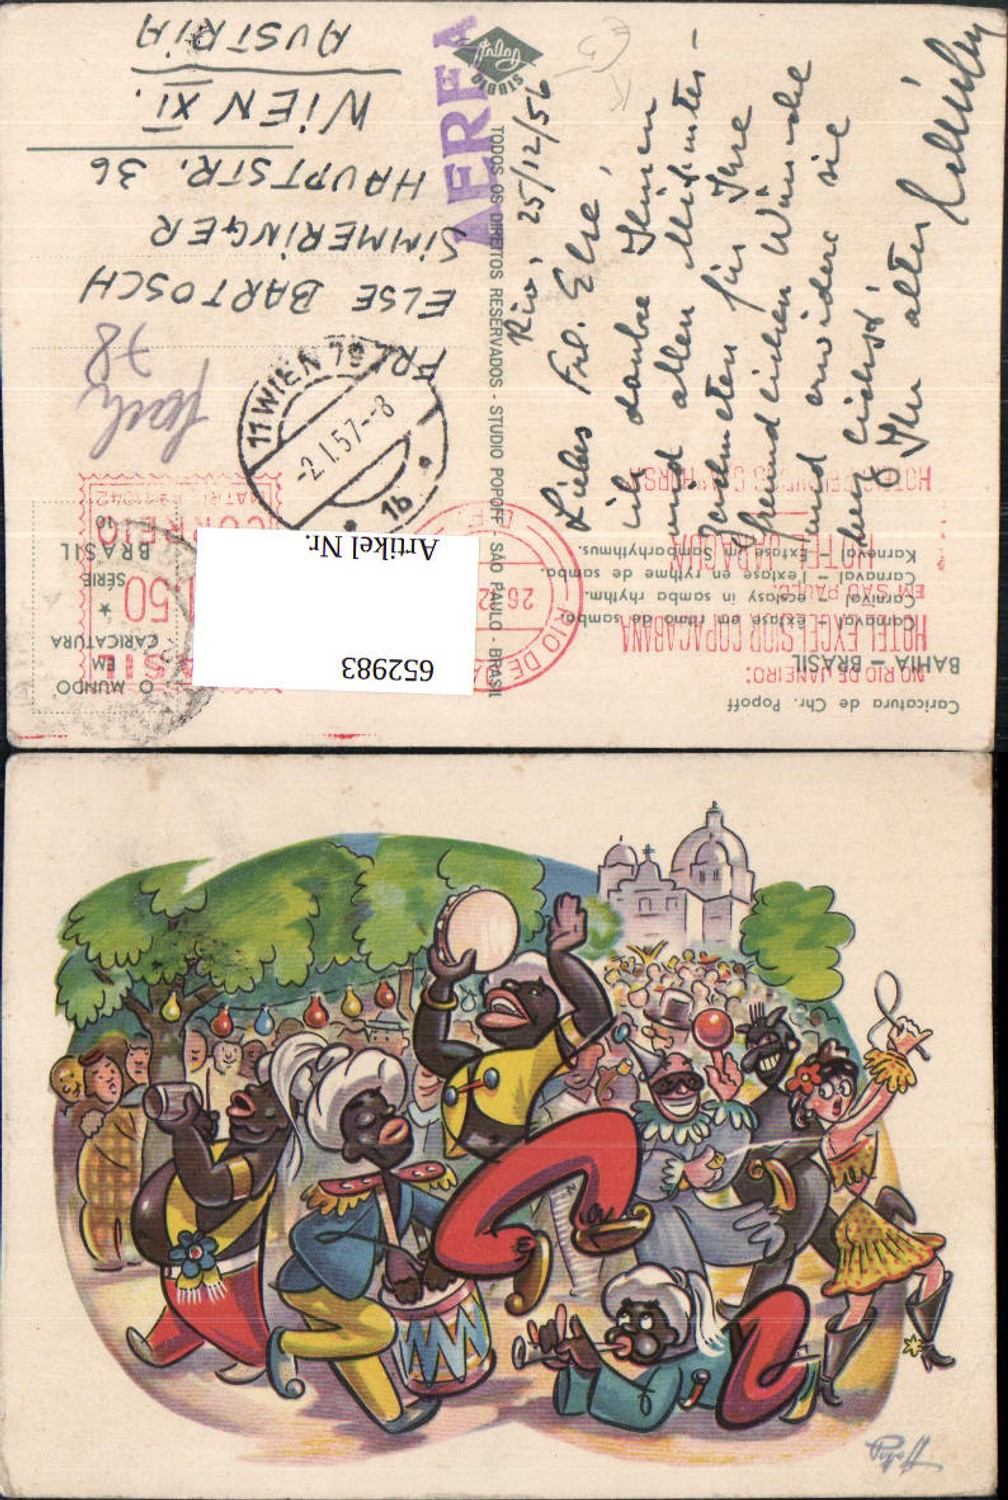 Caricatura de Chr. Popoff
BAHIA – BRASIL
Carnaval – extase em ritmo de samba.
Carnival – ecstasy in samba rhythm.
Carnaval – l'extase en rythme de samba.
Karneval – Extase im Sambarhythmus.
NO RIO DE JANEIRO:
HOTEL EXCELSIOR COPACABANA
EM SÃO PAULO:
HOTEL JARAGUÁ
O MUNDO
EM
CARICATURA
★
SÉRIE
BRASIL
10
BRASIL
150
CORREIO
RIO DE JA
D.F.
652983
Artikel Nr.
11 WIEN 79
-2.I.57--8
1b
TODOS OS DIREITOS RESERVADOS - STUDIO POPOFF - SÃO PAULO - BRASIL
STUDIO
Popoff
AEREA
Rio, 25/12/56
Liebes Frl. Else!
ich danke Ihnen
und allen Mitunter-
zeichneten für Ihre
freundlichen Wünsche
und erwidere sie
herzlichst!
Ihr alter
FRL.
ELSE BARTOSCH
SIMMERINGER
HAUPTSTR. 36
WIEN XI.
AUSTRIA
78
Popoff